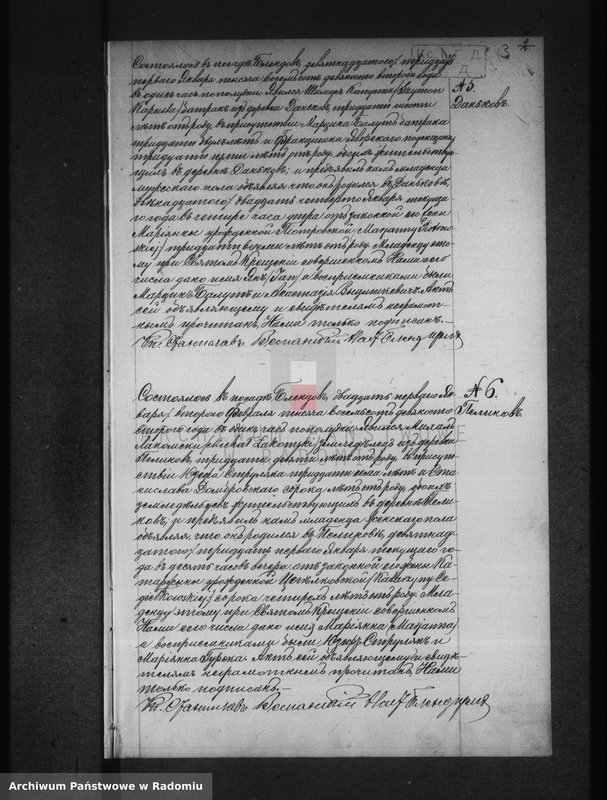 3
Состоялось въ посадѣ Блендовъ, девятнадцатаго / тридцать
перваго Января тысяча восемьсотъ девяносто второго года
въ одинъ часъ пополудни. Явился Шимонъ Капуста /Szymon
Kapusta/ батракъ изъ деревни Даньковъ, тридцати шести
лѣтъ отъ роду, въ присутствіи Марцина Балутъ батрака
тридцати лѣтъ и Францишка Яворскаго поденщика
тридцати пяти лѣтъ отъ роду, обоихъ жительствую-
щихъ въ деревнѣ Даньковъ; и предъявилъ намъ младенца
мужескаго пола объявляя что онъ родился въ Даньковѣ,
двѣнадцатаго / двадцать четвертаго Января текуща-
го года въ четыре часа утра отъ законной его жены
Маріянны урожденной Піотровской /Maryanny Piotrow-
skiej/ тридцати восьми лѣтъ отъ роду. Младенцу это-
му при Святомъ Крещеніи совершенномъ Нами сего
числа дано имя Янъ /Jan/ а воспріемниками были
Марцинъ Балутъ и Анастазія. Актъ
сей объявляющему и свидѣтелямъ неграмот-
нымъ прочитанъ, Нами только подписанъ.—
Кс. Станиславъ
№ 5.
Даньковъ.
Состоялось въ посадѣ Блендовъ, двадцать перваго Ян-
варя / второго Февраля тысяча восемьсотъ девяносто
второго года въ одинъ часъ пополудни. Явился Михалъ
Лакомскій /Michał Łakomski/ земледѣлецъ изъ деревни
Пелиновъ, тридцати девяти лѣтъ отъ роду, въ присут-
ствіи Юзефа Струляка тридцати семи лѣтъ и Ста-
нислава Домбровскаго сорока лѣтъ отъ роду, обоихъ
земледѣльцевъ жительствующихъ въ деревнѣ Пели-
новъ, и предъявилъ намъ младенца женскаго пола
объявляя, что онъ родился въ Пелиновѣ, девятнад-
цатаго / тридцать перваго Января текущаго го-
да въ десять часовъ вечера отъ законной его жены Ка-
таржины урожденной /Katarzyny
/ сорока четырехъ лѣтъ отъ роду. Мла-
денцу этому при Святомъ Крещеніи совершенномъ
Нами сего числа дано имя Маріянна /Maryanna/
а воспріемниками были Юзефъ Струлякъ и
Маріянна Гурска. Актъ сей объявляющему и свидѣ-
телямъ неграмотнымъ прочитанъ, Нами
только подписанъ.—
Кс. Станиславъ
№ 6.
Пелиновъ.
Archiwum Państwowe w Radomiu